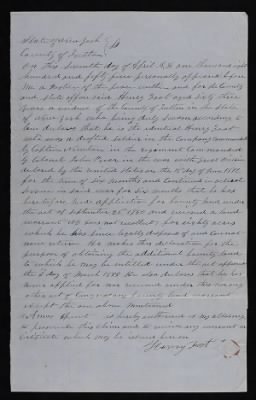 State of New York } SS
County of Fulton
On this Seventh day of April A.D. one thousand eight
hundred and fifty five personally appeared before
me a Justice of the peace within and for the County
and State aforesaid Henry Foot aged sixty three
years a resident of the County of Fulton in the State
of New York who being duly sworn according to
law declares that he is the identical Henry Foot
who was a soldier in the Company commanded
by Captain in the regiment commanded
by Colonel John Prior in the war with great Britain
declared by the United States on the 18 day of June 1812
for the term of Six months and continued in actual
service in said war for six months that he has
heretofore made application for bounty land under
the act of September 28 1850 and received a land
warrant not recollect for eighty acres
which he has since legally disposed of and cannot
now return He makes this declaration for the
purpose of obtaining the additional bounty land
to which he may be entitled under the act approved
the 3 day of March 1855 He also declares that he has
never applied for nor received under this or any
other act of Congress any bounty land warrant
except the one above mentioned
Amos is hereby authorised as my attorney
to prosecute this claim and to receive any warrant or
Certificate which may be issued
Henry Foot